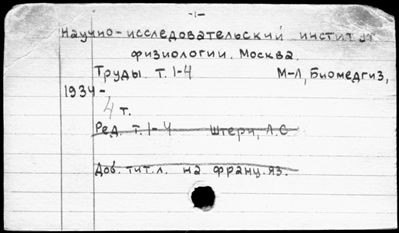 -1-
Научно-исследовательский институт
физиологии. Москва.
Труды. т. 1-4 М-Л, Биомедгиз,
1934-.
4 т.
Ред. т. 1-4 Штерн, Л.С.
Доб. тит. л. на франц. яз.